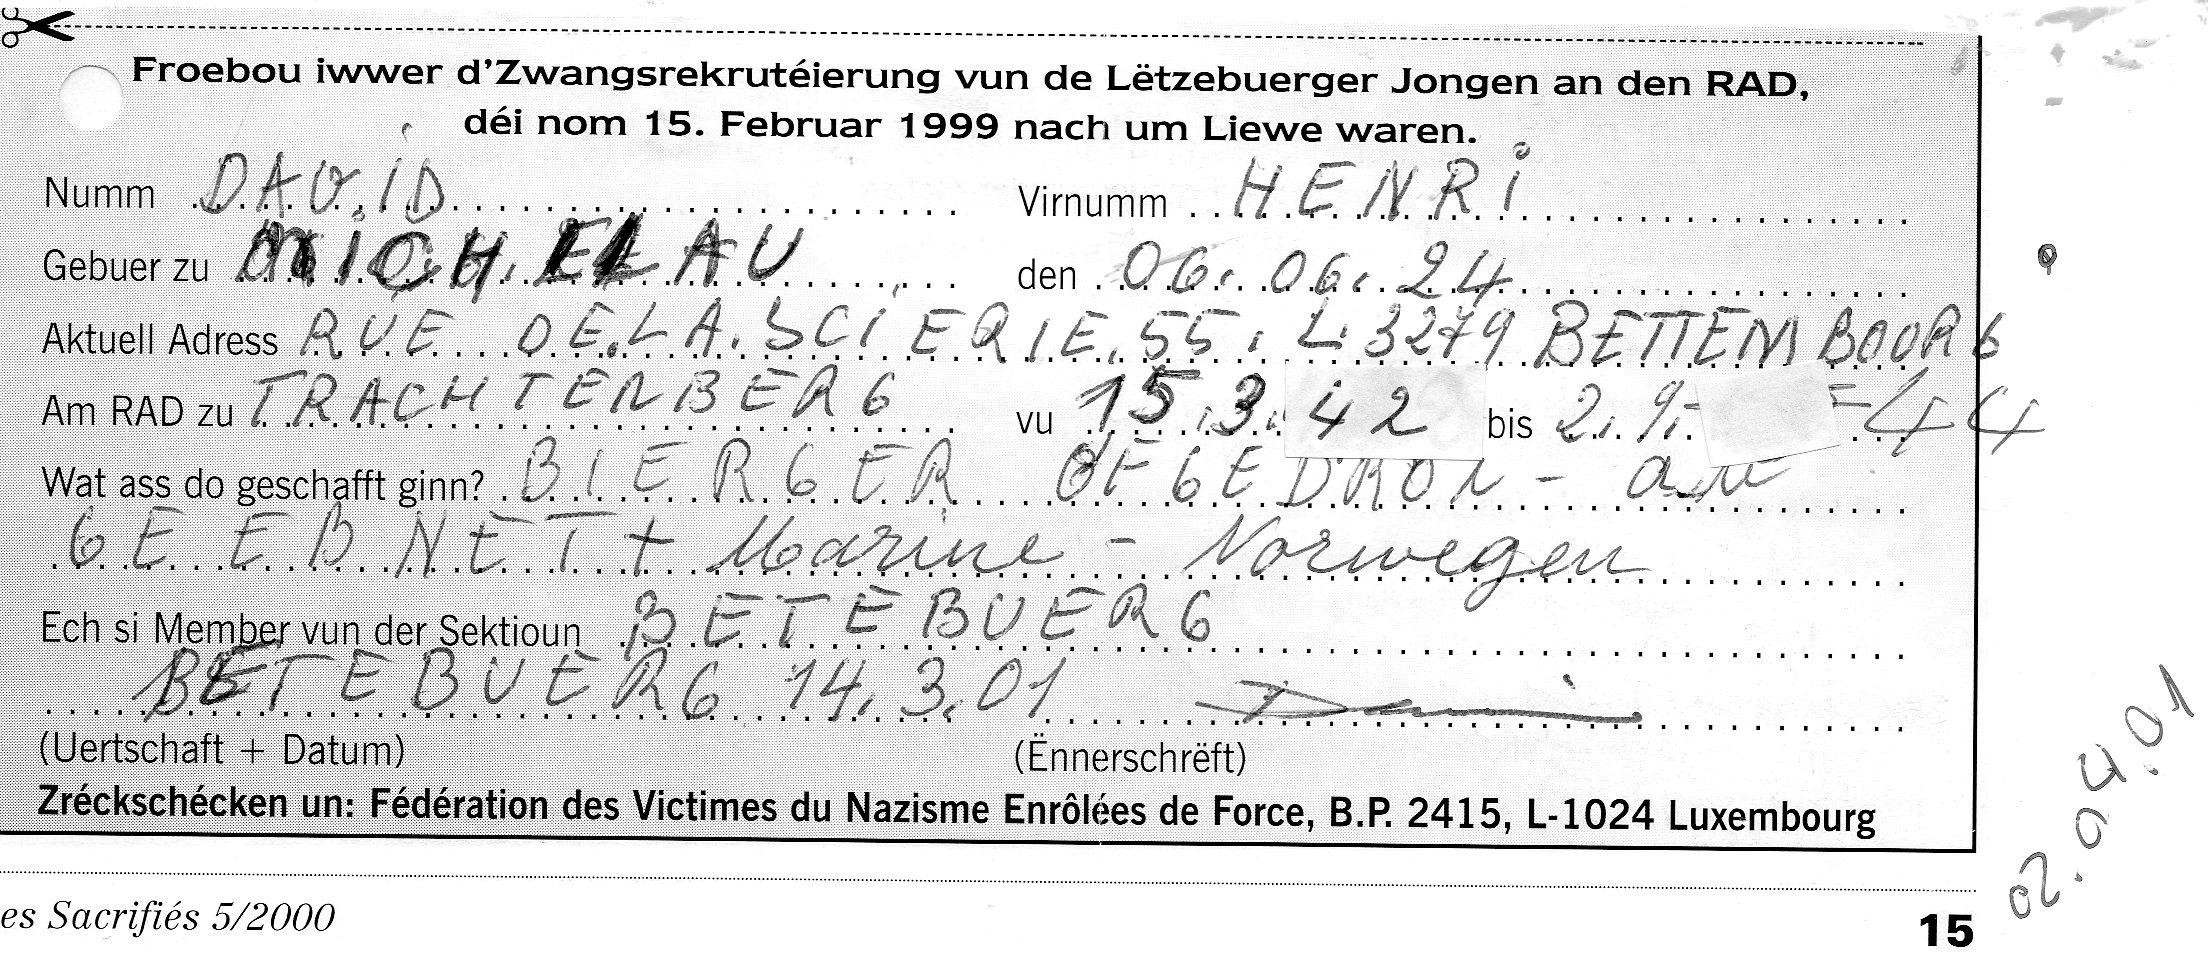 Froebou iwwer d'Zwangsrekrutéierung vun de Lëtzebuerger Jongen an den RAD,
déi nom 15. Februar 1999 nach um Liewe waren.
Numm DAViD Virnumm HENRi
Gebuer zu MiCHELAU den 06.06.24
Aktuell Adress RUE DE LA SCiERIE 55. L. 3279 BETTEMBOORG
Am RAD zu TRACHTENBERG vu 15.3. 42 bis 2.9.-44
Wat ass do geschafft ginn? BIERGER OFGEDRON - an
GEEBNET + Marine - Norwegen
Ech si Member vun der Sektioun BETEBUERG
BETEBUERG 14.3.01
(Uertschaft + Datum) (Ënnerschrëft)
Zréckschécken un: Fédération des Victimes du Nazisme Enrôlées de Force, B.P. 2415, L-1024 Luxembourg
es Sacrifiés 5/2000 15
02.04.01